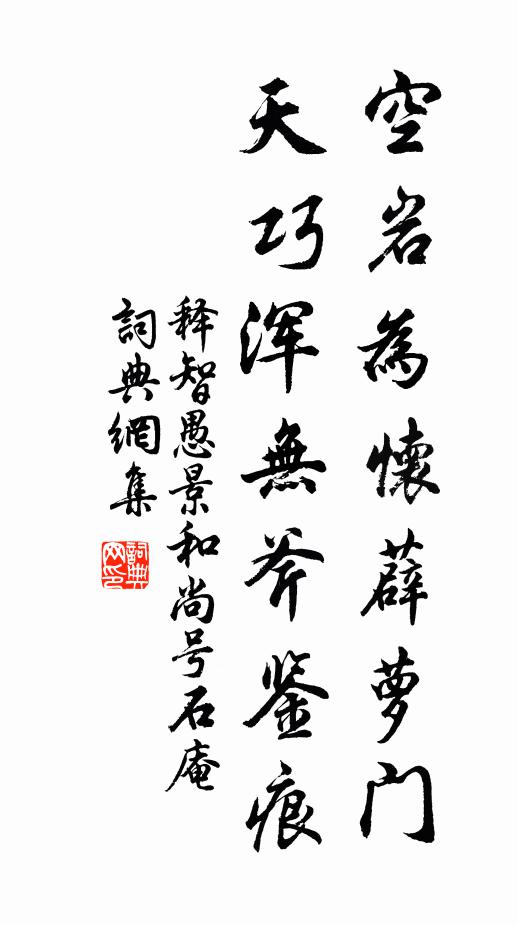 空岩為懷薜萝门
天巧浑無斧鉴痕
释智愚景和尚号石庵
詞典網集
詞典网印